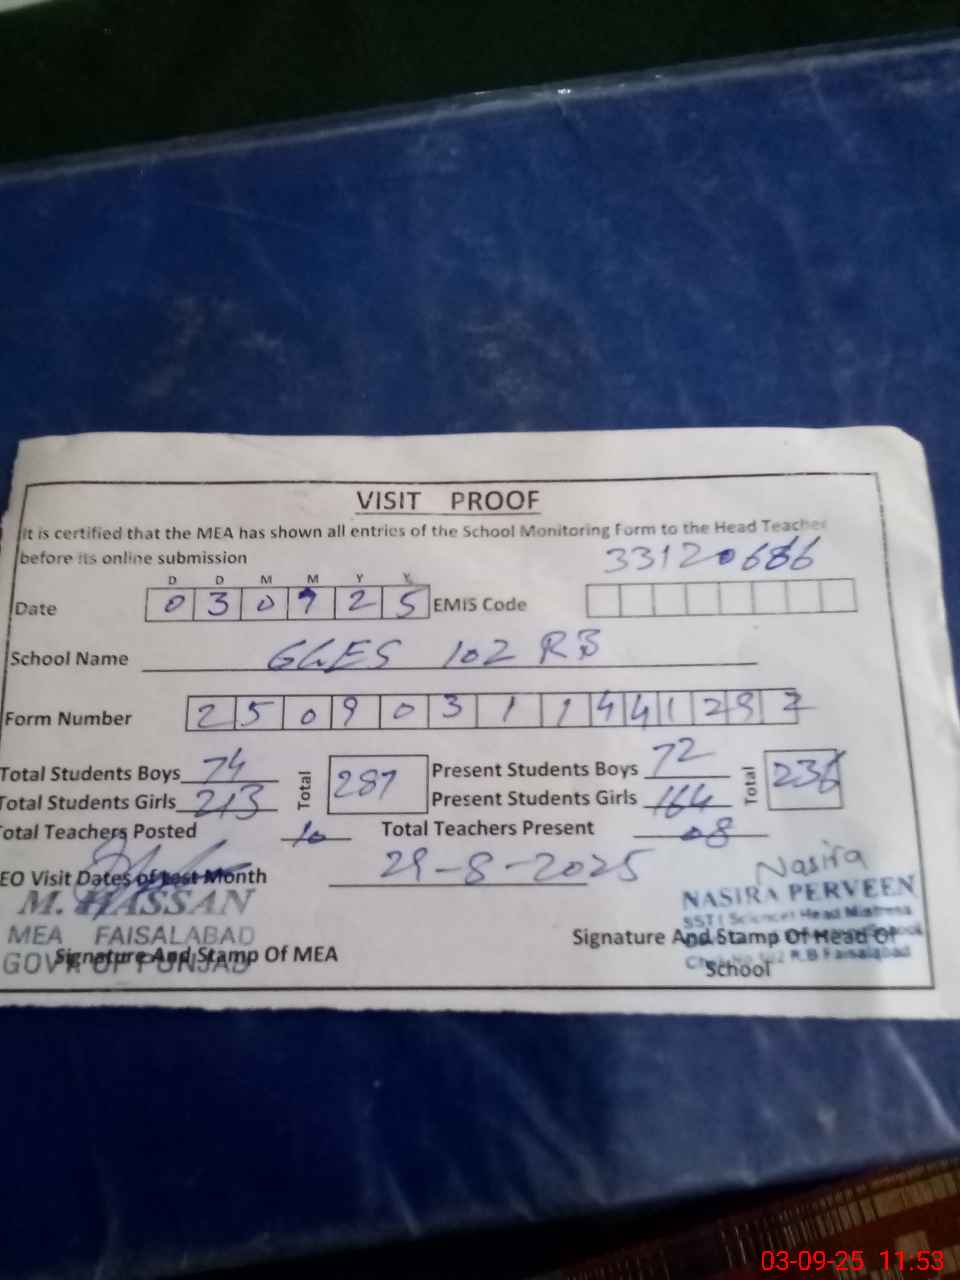 VISIT PROOF
It is certified that the MEA has shown all entries of the School Monitoring Form to the Head Teacher
before its online submission
33120686
D D M M Y Y
Date 0 3 0 9 2 5 EMIS Code
School Name GGES 102 RB
Form Number 2 5 0 9 0 3 1 1 4 4 1 2 9 2
Total Students Boys 74 Total 287 Present Students Boys 72 Total 236
Total Students Girls 213 Present Students Girls 164
Total Teachers Posted 10 Total Teachers Present 08
EO Visit Dates of Last Month 29-8-2025
Nasira
M. HASSAN
MEA FAISALABAD
GOVT OF PUNJAB
Signature And Stamp Of MEA
NASIRA PERVEEN
SST (Science) Head Mistress
Signature And Stamp Of Head Of
School
R.B Faisalabad
03-09-25 11:53